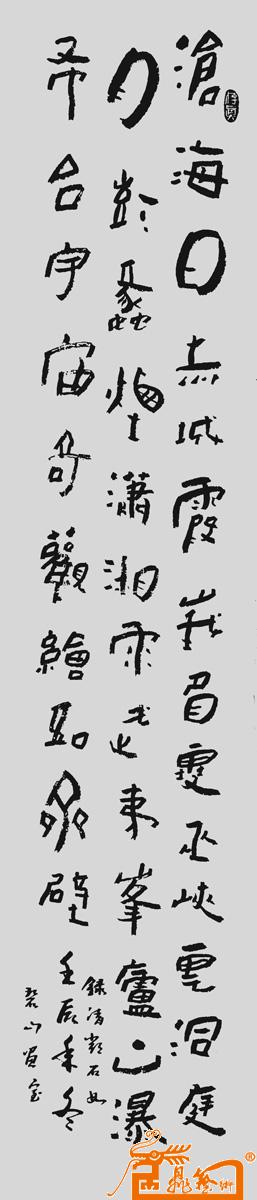 滄海日赤城霞峩眉雪巫峽雲洞庭
月彭蠡煙瀟湘雨武夷峯廬山瀑
布合宇宙奇觀繪吾齋壁
録清鄧石如
壬辰年冬